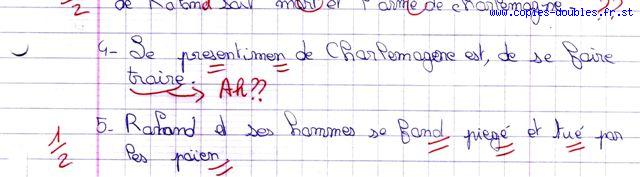 de Roland sont mort et l'arme de charlemagne. ??
2
www.copies-doubles.fr.st
4- Le presentimen de Charlemagene est, de se faire
traire. Ah??
1/2
5- Roland et ses hommes se fond piegé et tué par
les paien